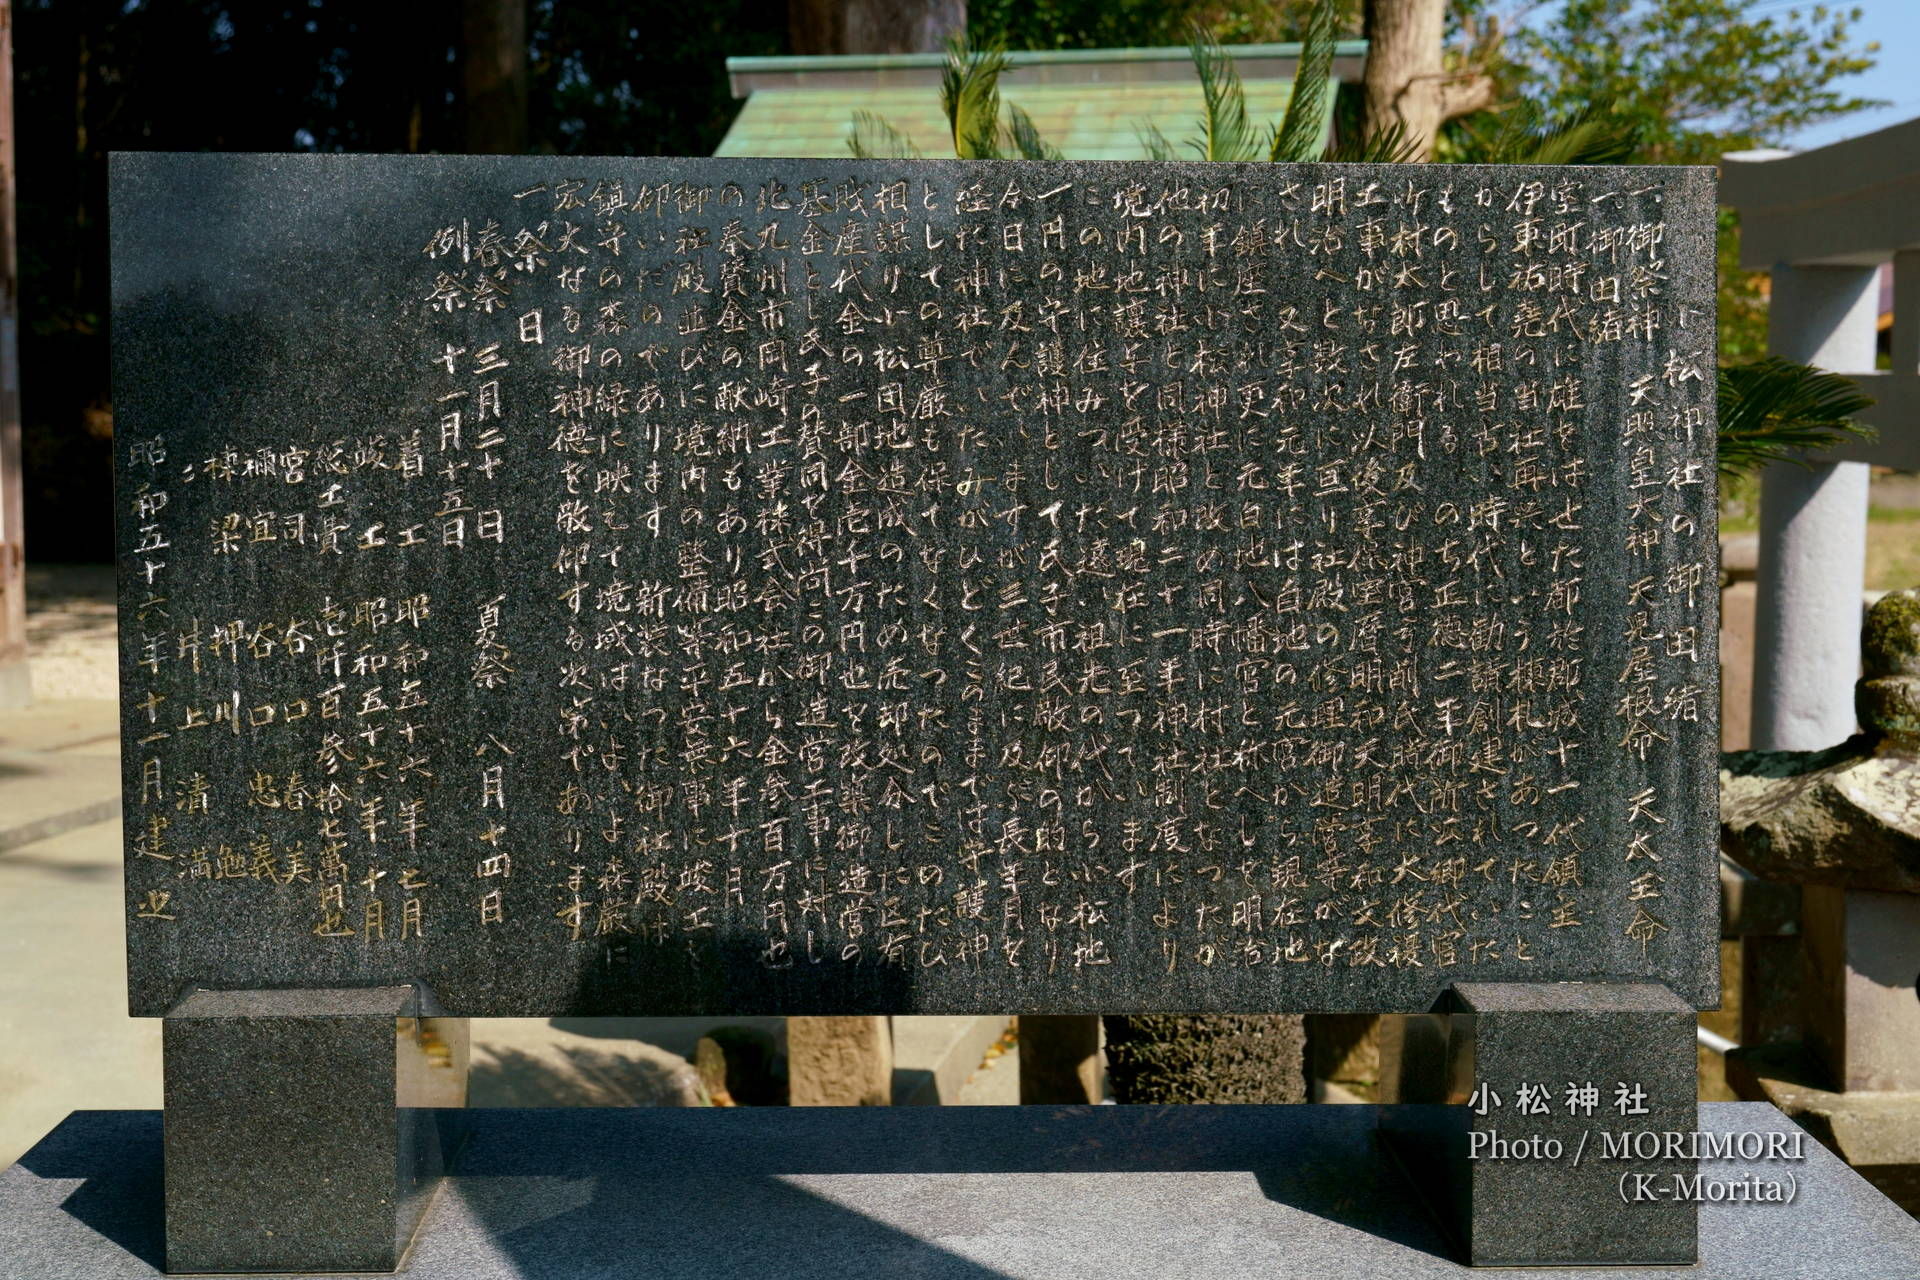 小松神社の御由緒
一、御祭神 天照皇大神 天児屋根命 天太玉命
一、御由緒
室町時代に雄をはせた都於郡城十一代領主
伊東祐堯の当社再興という棟札があったこと
からして相当古い時代に勧請創建されていた
ものと思われる。のち正徳二年御所公御代官
竹村太郎左衛門及び神宮弓削氏時代に大修復
工事がなされ以後享保宝暦明和天明享和文政
明治へと数次に亘り社殿の修理御造営等がな
され 又享和元年には白地の元宮から現在地
に鎮座され更に元白地八幡宮と称へしを明治
初年に小松神社と改め同時に村社となったが
他の神社と同様昭和二十一年神社制度により
境内地譲与を受けて現在に至っています
この地に住みついた遠い祖先の代から小松地
一円の守護神として氏子市民敬仰の的となり
今日に及んでいますが三世紀に及ぶ長年月を
経た神社でいたみがひどくこのままでは守護神
としての尊厳も保てなくなったのでこのたび
相謀り小松団地造成のため売却処分した区有
財産代金の一部金壱千万円也を改築御造営の
基金とし氏子の賛同を得尚この御造営工事に対し
北九州市岡崎工業株式会社から金参百万円也
の奉賛金の献納もあり昭和五十六年十月
御社殿並びに境内の整備等平安無事に竣工を
仰いだのであります 新装なった御社殿は
鎮守の森の緑に映えて境域はいよいよ森厳に
宏大なる御神徳を敬仰する次第であります
一、祭日
春祭 三月二十日 夏祭 八月十四日
例祭 十一月十五日
着工 昭和五十六年七月
竣工 昭和五十六年十月
総工費 壱阡百参拾七萬円也
宮司 谷口春美
禰宜 谷口忠義
棟梁 押川勉
〃 井上清満
昭和五十六年十一月建之
小松神社
Photo / MORIMORI
（K-Morita）